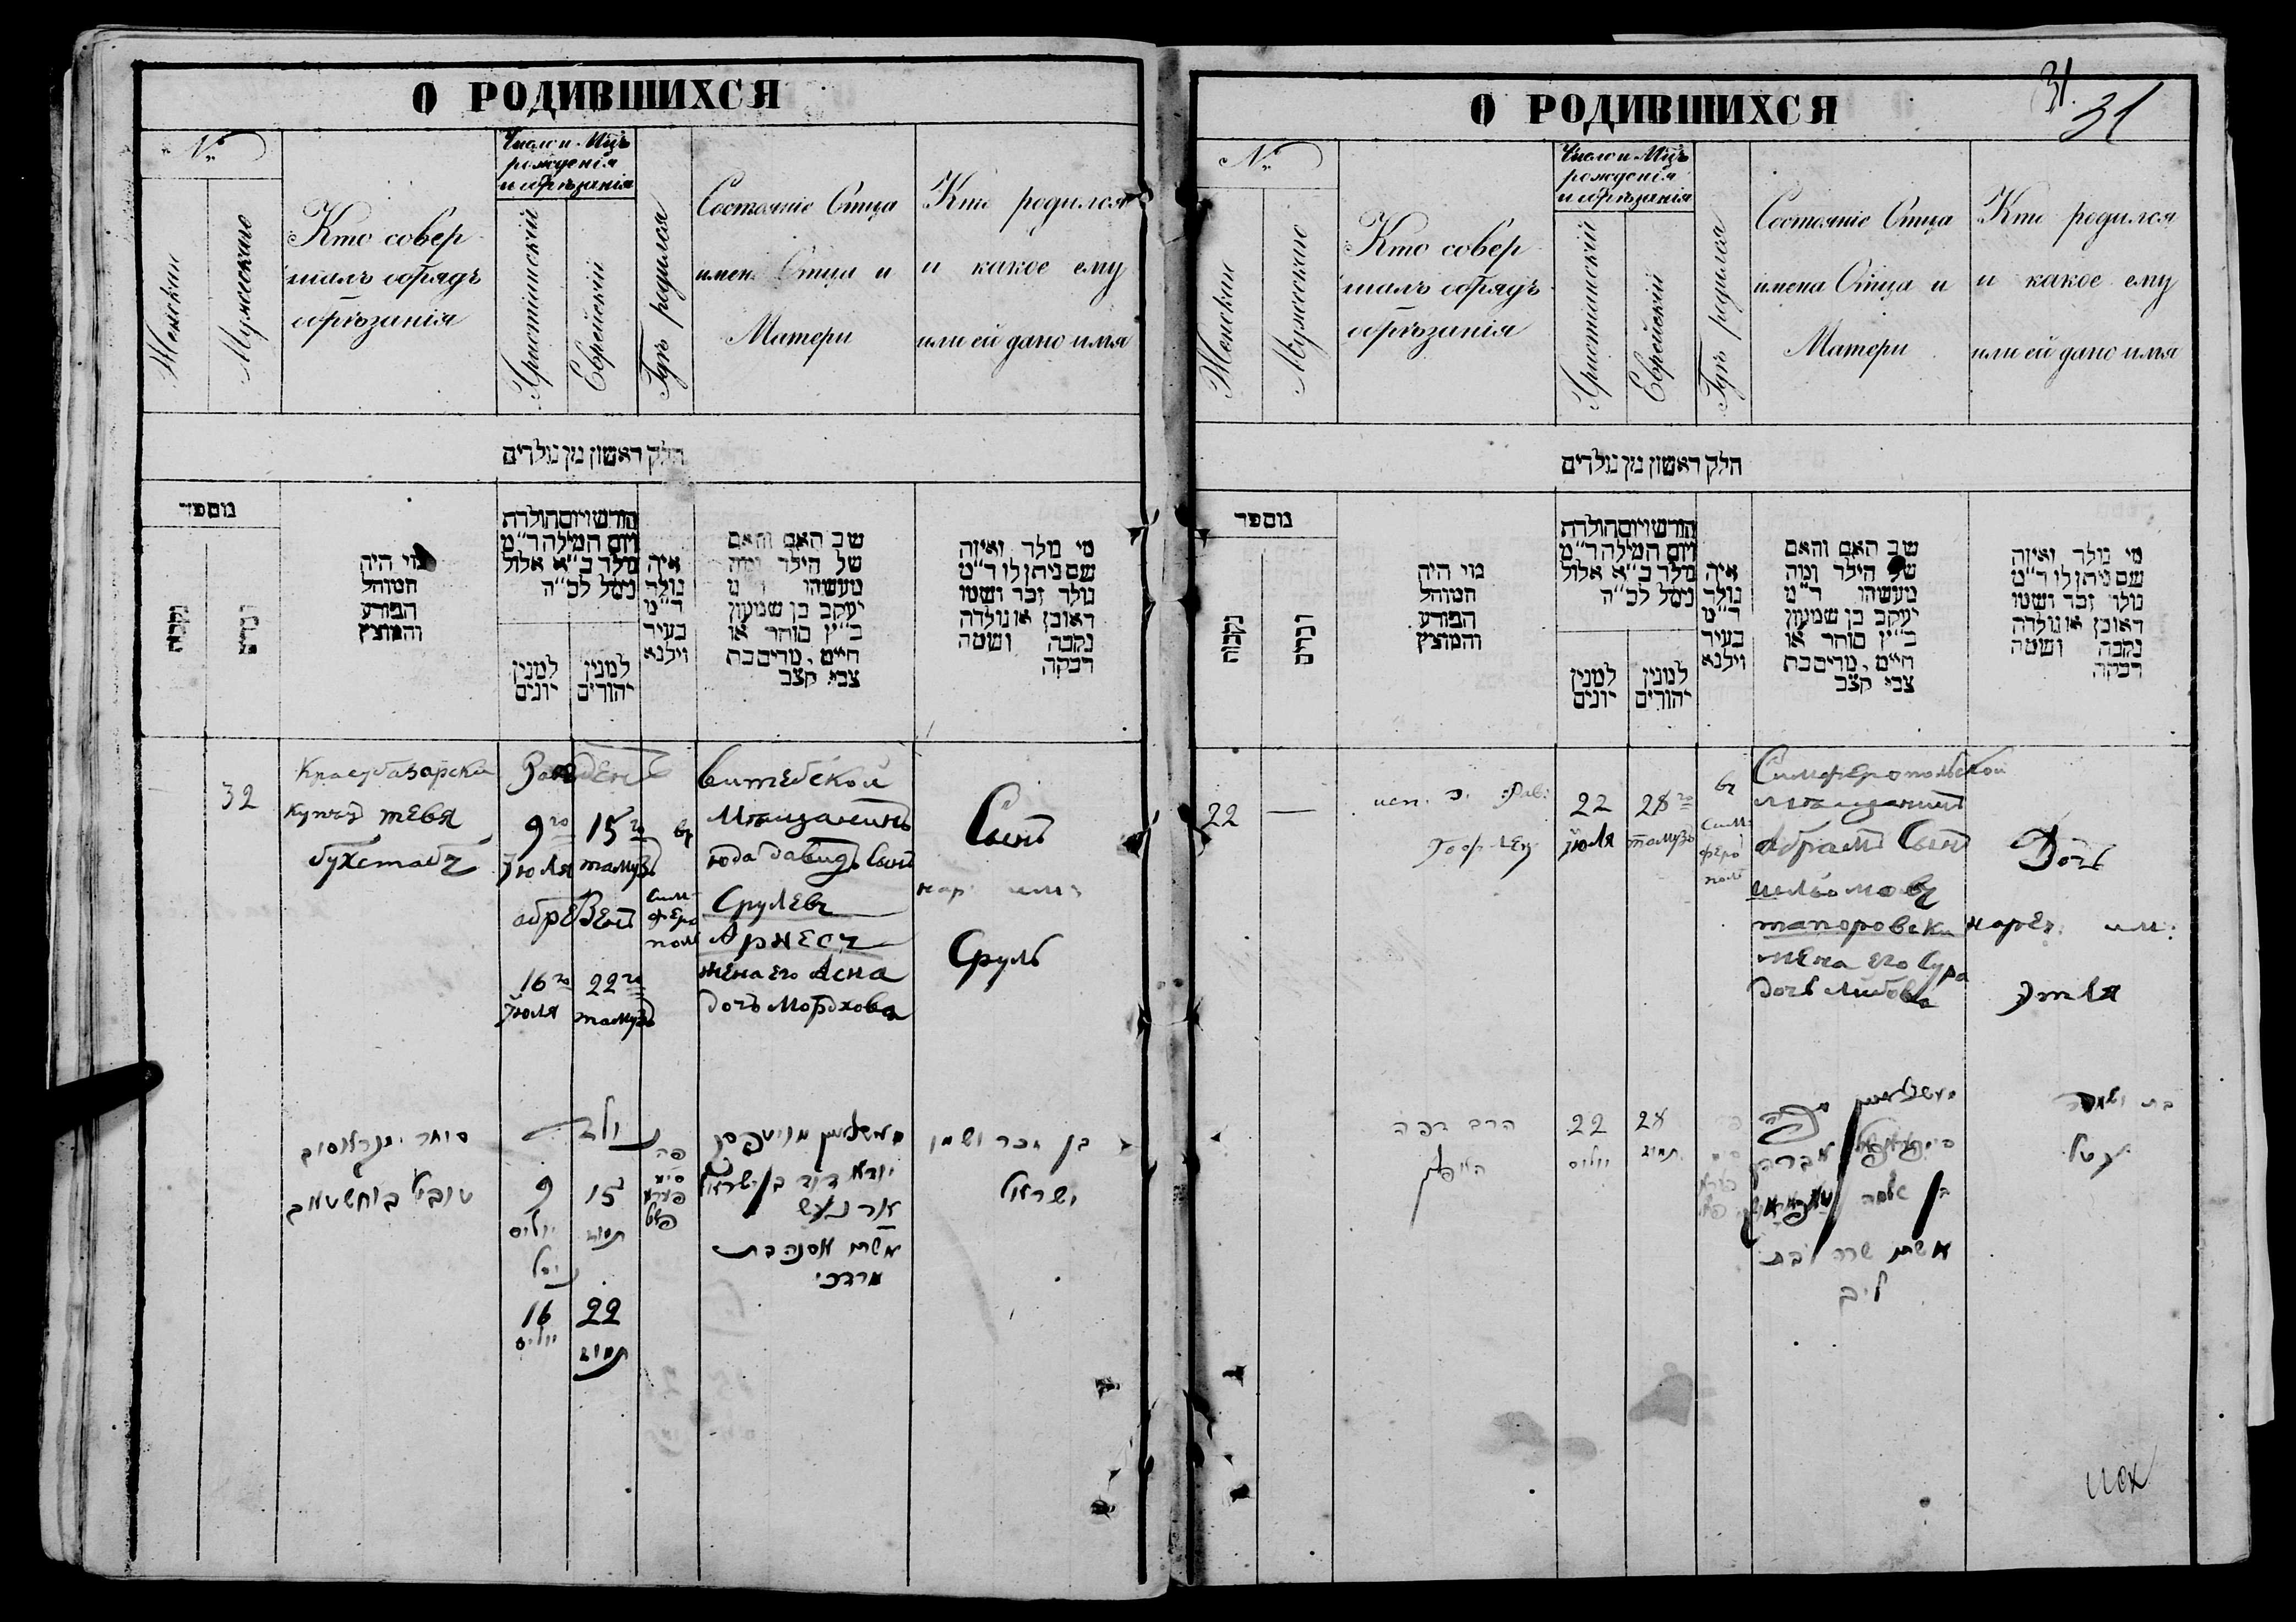 О РОДИВШИХСЯ
№
Женскаго
Мужескаго
Кто совер
шалъ обрядъ
обрѣзанія
Число и Мцъ
рожденія
и обрѣзанія
Христіанскій
Еврейскій
Гдѣ родился
Состояніе Отца
имена Отца и
Матери
Кто родился
и какое ему
или ей дано имя
חלק ראשון מן נולדים
מספר
נקבות
זכרים
מי היה
המוהל
הפורע
והמוצץ
חודש ויום הולדת
ויום המילה ד״מ
נולד ב״א אלול
נימל לכ״ה
למנין
יונים
למנין
יהודים
איה
נולד
ד״מ
בעיר
וילנא
שם האב והאם
של הילד ומה
מעשהו ד״מ
יעקב בן שמעון
כ״ץ סוחר או
חייט, מרים בת
צבי קצב
מי נולד ואיזה
שם ניתן לו ד״מ
נולד זכר ושמו
ראובן או נולדה
נקבה ושמה
רבקה
32
купецъ тевя
бухстабъ
9го
Іюля
15го
тамузъ
обрѣзанъ
16го
Іюля
22го
тамузъ
въ
Сим
феро
пол
витебской
Мѣщанинъ
юда давидъ Сынъ
Срулевъ
Арнесъ
жена его Асна
дочь Мордхова
Сынъ
нар имя
Сруль
סוחר
טוביל בוחשטאב
נולד
9
יוליוס
15
תמוז
נימל
16
יוליוס
22
תמוז
פה
סימ
פערא
פאל
יודא דוד בן ישראל
ארנעש
אשתו אסנה בת
מרדכי
בן זכר ושמו
ישראל
О РОДИВШИХСЯ
31.
31
№
Женскаго
Мужескаго
Кто совер
шалъ обрядъ
обрѣзанія
Число и Мцъ
рожденія
и обрѣзанія
Христіанскій
Еврейскій
Гдѣ родился
Состояніе Отца
имена Отца и
Матери
Кто родился
и какое ему
или ей дано имя
חלק ראשון מן נולדים
מספר
נקבות
זכרים
מי היה
המוהל
הפורע
והמוצץ
חודש ויום הולדת
ויום המילה ד״מ
נולד ב״א אלול
נימל לכ״ה
למנין
יונים
למנין
יהודים
איה
נולד
ד״מ
בעיר
וילנא
שם האב והאם
של הילד ומה
מעשהו ד״מ
יעקב בן שמעון
כ״ץ סוחר או
חייט, מרים בת
צבי קצב
מי נולד ואיזה
שם ניתן לו ד״מ
נולד זכר ושמו
ראובן או נולדה
נקבה ושמה
רבקה
22
—
исп. д. Рав:
22
Іюля
28го
тамузъ
въ
Сим
феро
пол
Симферопольской
мѣщанинъ
Абрамъ Сынъ
шльомовъ
тапоровски
жена его Сура
дочь либова
Дочь
нареч. им:
Этля
הרב דפה
22
יוליוס
28
תמוז
אברהם
בן שלמה
אשתו שרה בת
ליב
בת ושמה
עטל